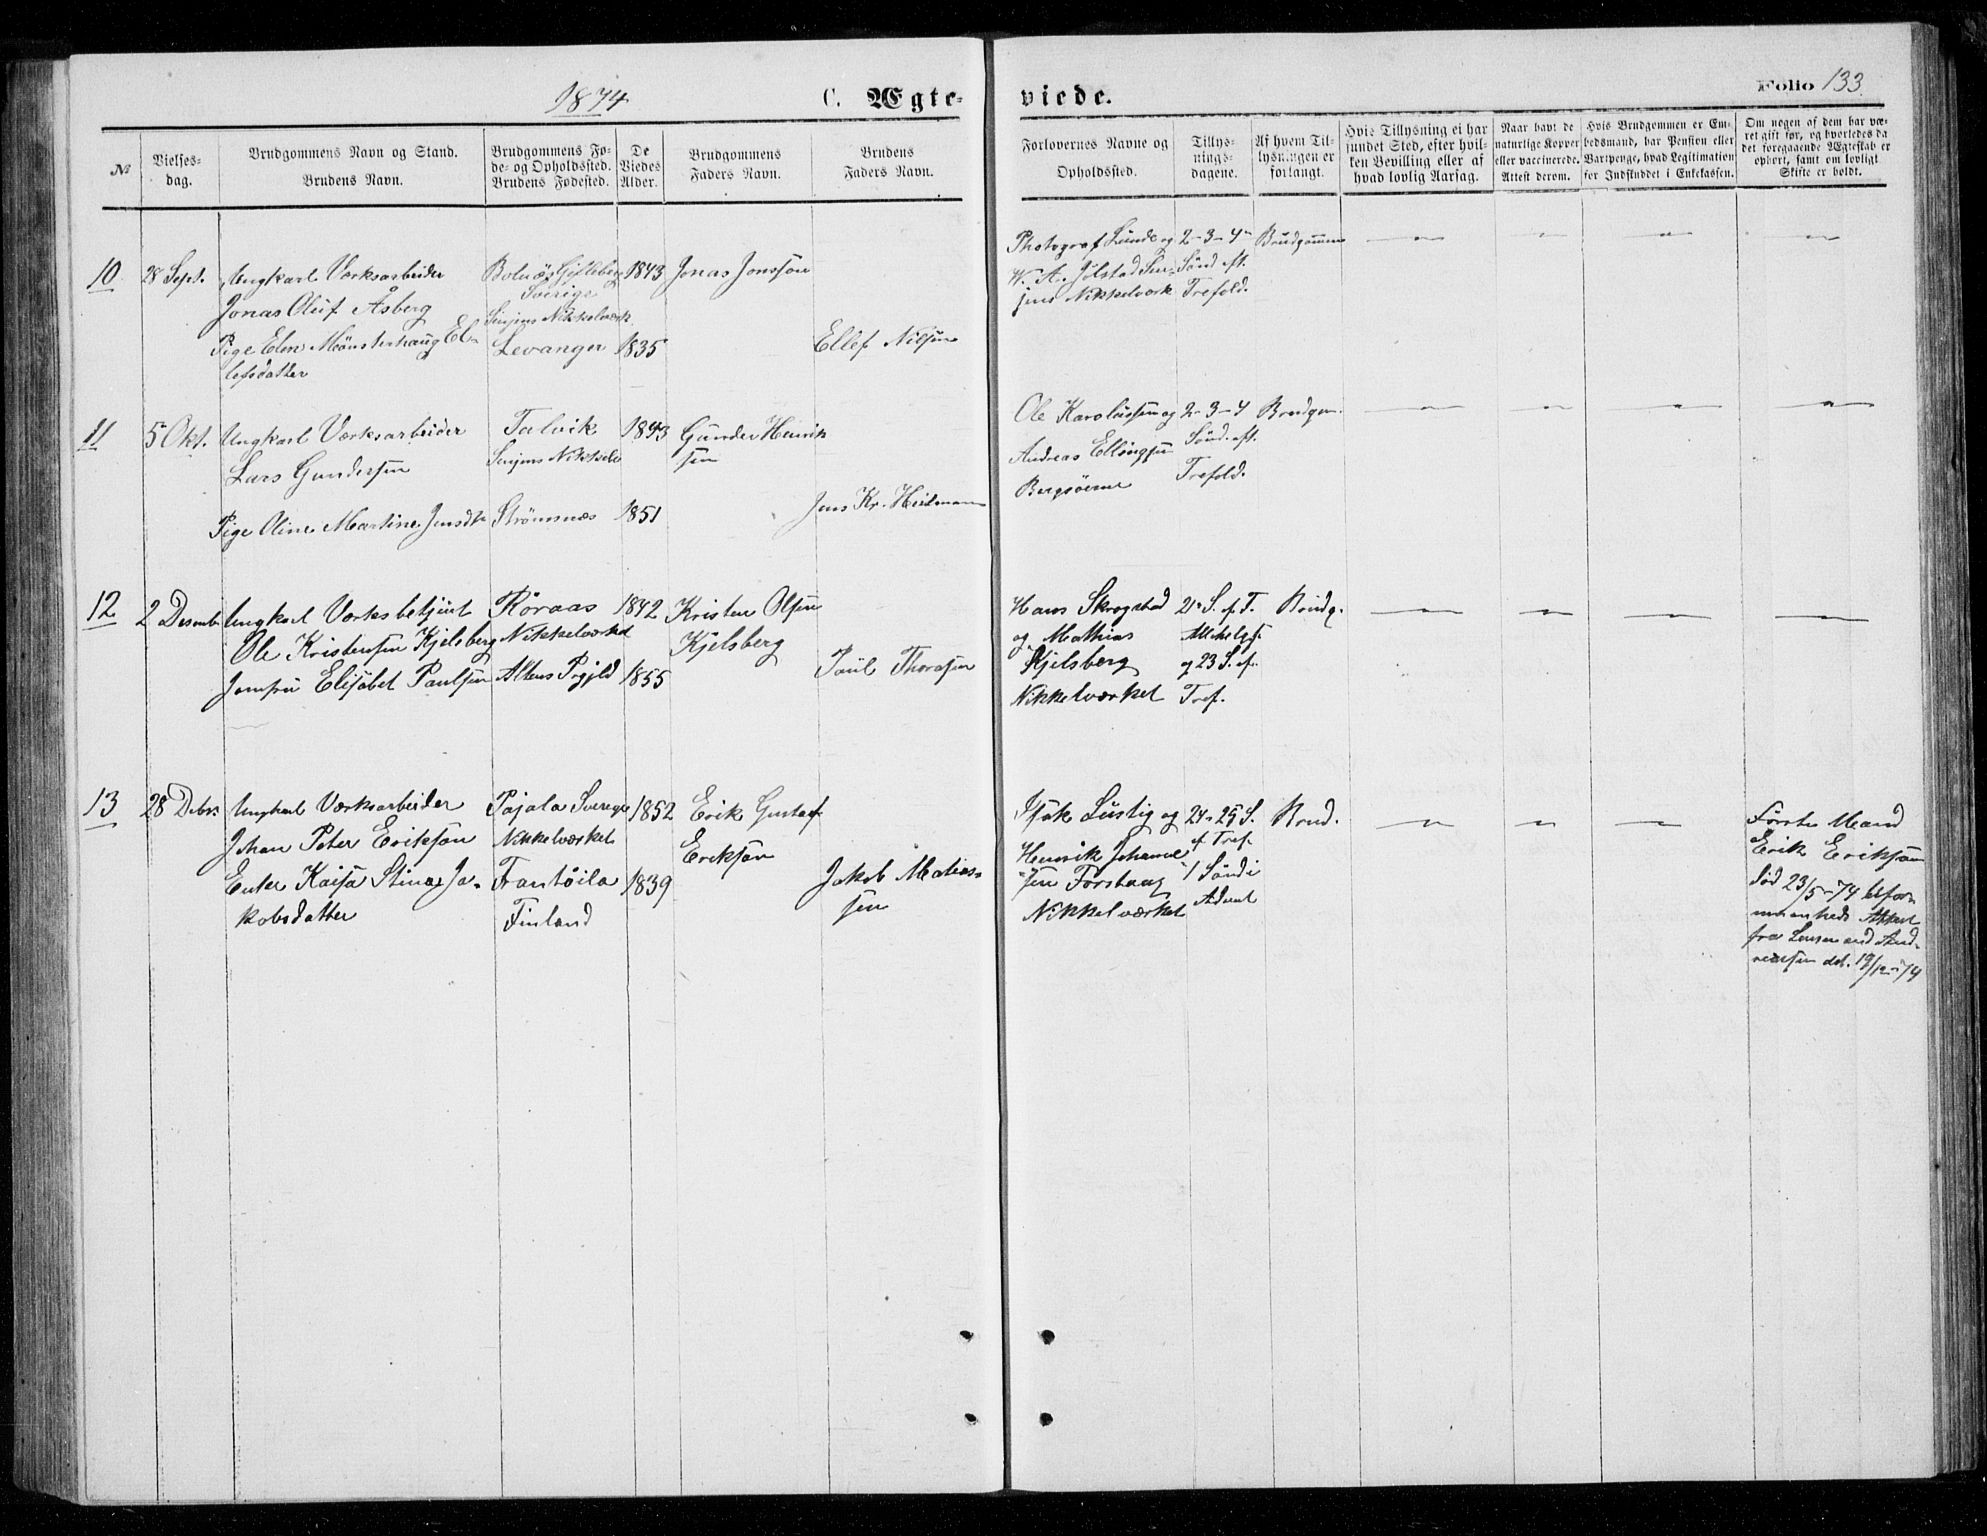 1874
C. Ægte-
viede.
Folio 133.
№
Vielses-
dag.
Brudgommens Navn og Stand.
Brudens Navn.
Brudgommens Fø-
de- og Opholdssted.
Brudens Fødested.
De
Viedes
Alder.
Brudgommens
Faders Navn.
Brudens
Faders Navn.
Forlovernes Navne og
Opholdssted.
Tillys-
nings-
dagene.
Af hvem Til-
lysningen er
forlangt.
Hvis Tillysning ei har
fundet Sted, efter hvil-
ken Bevilling eller af
hvad lovlig Aarsag.
Naar havt de
naturlige Kopper
eller vaccinerede.
Attest derom.
Hvis Brudgommen er Em-
bedsmand, har Pension eller
Vartpenge, hvad Legitimation
for Indskuddet i Enkekassen.
Om nogen af dem har væ-
ret gift før, og hvorledes da
det foregaaende Ægteskab er
ophørt, samt om lovligt
Skifte er holdt.
10
28 Sept.
Ungkarl Værksarbeider
Jonas Oluf Åsberg
Pige Elen Mönsterhaug El-
lefsdatter
Sverige
Senjens Nikkelværk
Levanger
1843
1835
Jonas Jonsson
Ellef Nilsen
Photograf Lunde og
W. A. Jölstad Sen-
jens Nikkelværk
2-3-4
Sönd. eft.
Trefold.
Brudgommen
11
5 Okt.
Ungkarl Værksarbeider
Lars Gundersen
Pige Oline Martine Jensdtr
Talvik
Senjens Nikkelv
Strömsnæs
1843
1851
Gunder Henrik
sen
Jens Kr. Heitmann
Ole Karolussen og
Andreas Ellingsen
Bergsöerne
2-3-4
Sönd. eft.
Trefold.
Brudgom.
12
2 Desemb
Ungkarl Værksbetjent
Ole Kristensen Kjelsberg
Jomfru Elisabet Paulsen
Röraas
Nikkelværket
Altens Prgjld
1842
1855
Kristen Olsen
Kjelsberg
Paul Thorsen
Hans Skrogstad
og Mathias
Kjelsberg
Nikkelværket
21 S. ef. T.
og 23 S. ef.
Tref.
Brudg.
13
28 Debr.
Ungkarl Værksarbeider
Johan Peter Erikson
Enke Kaisa Stina Ja-
kobsdatter
Pajala Sverige
Nikkelværket
Frantsila
Finland
1852
1839
Erik Gustaf
Erikson
Jakob Matias-
sen
Isak Lustig og
Henrik Johanne-
sen Forshaag
Nikkelværket
24-25 S.
ef Tref.
1 Sönd i
Advent
Brud.
Förste Mand
Erik Erikson
död 23/5-74 ifør
Attest
fra Lensmand And-
reassen dat. 19/12-74